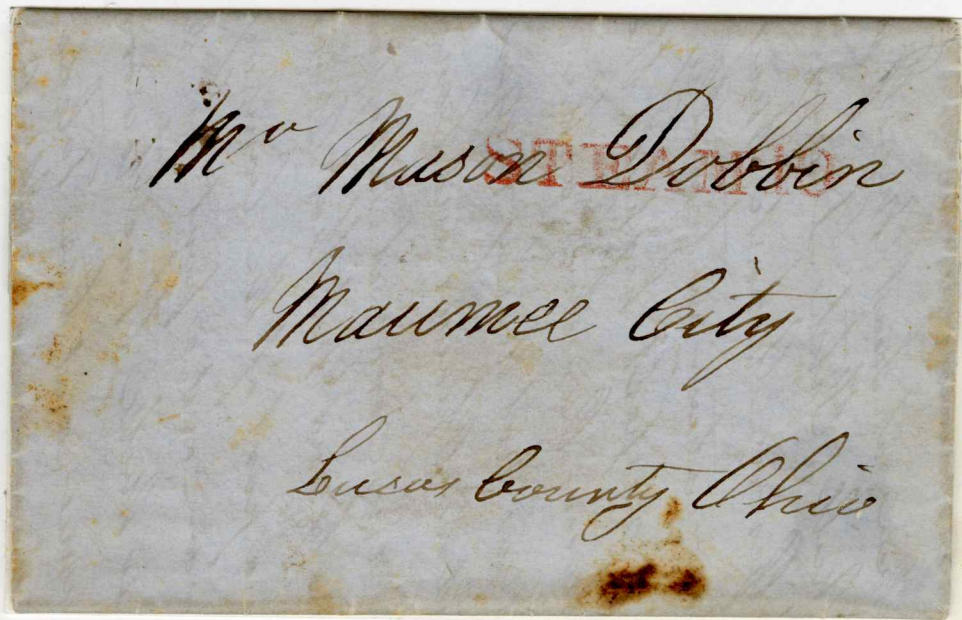 Mr Mason Dobbin
STEAM 10
Maumee City
Lucas County Ohio